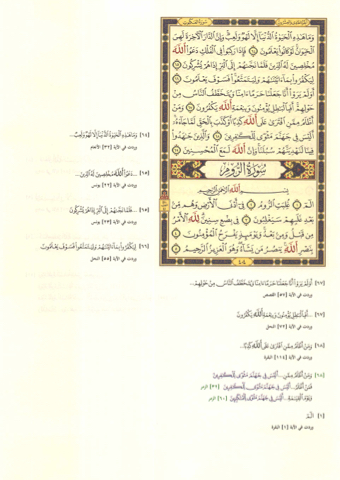 سورة العنكبوت
وَمَا هَٰذِهِ ٱلْحَيَوٰةُ ٱلدُّنْيَآ إِلَّا لَهْوٌ وَلَعِبٌ وَإِنَّ ٱلدَّارَ ٱلْـَٔاخِرَةَ لَهِىَ
ٱلْحَيَوَانُ لَوْ كَانُوا۟ يَعْلَمُونَ ٦٤ فَإِذَا رَكِبُوا۟ فِى ٱلْفُلْكِ دَعَوُا۟ ٱللَّهَ
مُخْلِصِينَ لَهُ ٱلدِّينَ فَلَمَّا نَجَّىٰهُمْ إِلَى ٱلْبَرِّ إِذَا هُمْ يُشْرِكُونَ ٦٥
لِيَكْفُرُوا۟ بِمَآ ءَاتَيْنَٰهُمْ وَلِيَتَمَتَّعُوا۟ فَسَوْفَ يَعْلَمُونَ ٦٦
أَوَلَمْ يَرَوْا۟ أَنَّا جَعَلْنَا حَرَمًا ءَامِنًا وَيُتَخَطَّفُ ٱلنَّاسُ مِنْ
حَوْلِهِمْ أَفَبِٱلْبَٰطِلِ يُؤْمِنُونَ وَبِنِعْمَةِ ٱللَّهِ يَكْفُرُونَ ٦٧ وَمَنْ
أَظْلَمُ مِمَّنِ ٱفْتَرَىٰ عَلَى ٱللَّهِ كَذِبًا أَوْ كَذَّبَ بِٱلْحَقِّ لَمَّا جَآءَهُۥٓ
أَلَيْسَ فِى جَهَنَّمَ مَثْوًى لِّلْكَٰفِرِينَ ٦٨ وَٱلَّذِينَ جَٰهَدُوا۟
فِينَا لَنَهْدِيَنَّهُمْ سُبُلَنَا وَإِنَّ ٱللَّهَ لَمَعَ ٱلْمُحْسِنِينَ ٦٩
سُورَةُ ٱلرُّومِ
بِسْمِ ٱللَّهِ ٱلرَّحْمَٰنِ ٱلرَّحِيمِ
الٓمٓ ١ غُلِبَتِ ٱلرُّومُ ٢ فِىٓ أَدْنَى ٱلْأَرْضِ وَهُم مِّنۢ
بَعْدِ غَلَبِهِمْ سَيَغْلِبُونَ ٣ فِى بِضْعِ سِنِينَ لِلَّهِ ٱلْأَمْرُ
مِن قَبْلُ وَمِنۢ بَعْدُ وَيَوْمَئِذٍ يَفْرَحُ ٱلْمُؤْمِنُونَ ٤
بِنَصْرِ ٱللَّهِ يَنصُرُ مَن يَشَآءُ وَهُوَ ٱلْعَزِيزُ ٱلرَّحِيمُ ٥
٤٠٤
[٦٤] وَمَا هَٰذِهِ ٱلْحَيَوٰةُ ٱلدُّنْيَآ إِلَّا لَهْوٌ وَلَعِبٌ...
وردت في الآية [٣٢] الأنعام
[٦٥] ...دَعَوُا۟ ٱللَّهَ مُخْلِصِينَ لَهُ ٱلدِّينَ...
وردت في الآية [٢٢] يونس
[٦٥] ...فَلَمَّا نَجَّىٰهُمْ إِلَى ٱلْبَرِّ إِذَا هُمْ يُشْرِكُونَ
وردت في الآية [٢٣] يونس
[٦٦] لِيَكْفُرُوا۟ بِمَآ ءَاتَيْنَٰهُمْ وَلِيَتَمَتَّعُوا۟ فَسَوْفَ يَعْلَمُونَ
وردت في الآية [٥٥] النحل
[٦٧] أَوَلَمْ يَرَوْا۟ أَنَّا جَعَلْنَا حَرَمًا ءَامِنًا وَيُتَخَطَّفُ ٱلنَّاسُ مِنْ حَوْلِهِمْ...
وردت في الآية [٥٧] القصص
[٦٧] ...أَفَبِٱلْبَٰطِلِ يُؤْمِنُونَ وَبِنِعْمَةِ ٱللَّهِ يَكْفُرُونَ
وردت في الآية [٧٢] النحل
[٦٨] وَمَنْ أَظْلَمُ مِمَّنِ ٱفْتَرَىٰ عَلَى ٱللَّهِ كَذِبًا...
وردت في الآية [١١٤] البقرة
[٦٨] وَمَنْ أَظْلَمُ مِمَّنِ... أَلَيْسَ فِى جَهَنَّمَ مَثْوًى لِّلْكَٰفِرِينَ
فَمَنْ أَظْلَمُ... أَلَيْسَ فِى جَهَنَّمَ مَثْوًى لِّلْكَٰفِرِينَ [٣٢] الزمر
وَيَوْمَ ٱلْقِيَٰمَةِ... أَلَيْسَ فِى جَهَنَّمَ مَثْوًى لِّلْمُتَكَبِّرِينَ [٦٠] الزمر
[١] الٓمٓ
وردت في الآية [١] البقرة